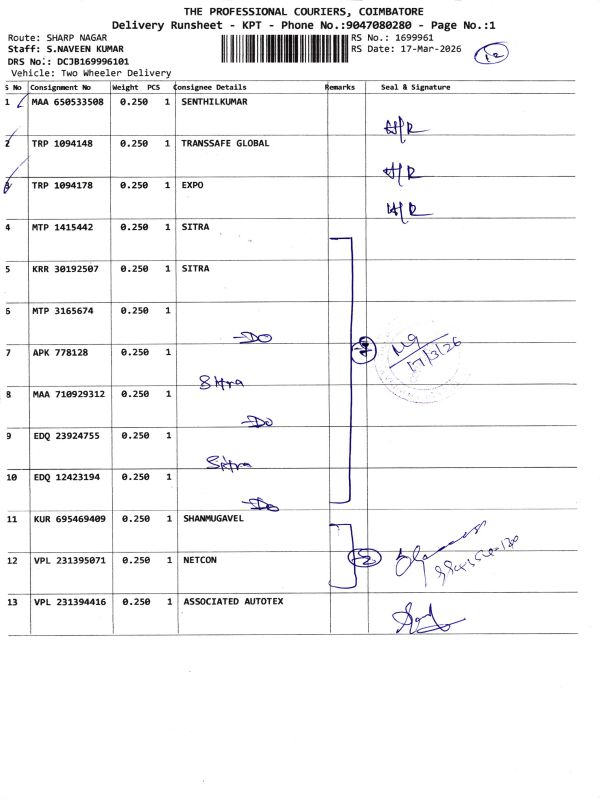 THE PROFESSIONAL COURIERS, COIMBATORE
Delivery Runsheet - KPT - Phone No.:9047080280 - Page No.:1
Route: SHARP NAGAR RS No.: 1699961
Staff: S.NAVEEN KUMAR RS Date: 17-Mar-2026
DRS No.: DCJB169996101
Vehicle: Two Wheeler Delivery
S No Consignment No Weight PCS Consignee Details Remarks Seal & Signature
1 MAA 650533508 0.250 1 SENTHILKUMAR
2 TRP 1094148 0.250 1 TRANSSAFE GLOBAL
3 TRP 1094178 0.250 1 EXPO
4 MTP 1415442 0.250 1 SITRA
5 KRR 30192507 0.250 1 SITRA
6 MTP 3165674 0.250 1
-Do
7 APK 778128 0.250 1
17/3/26
Sitra
8 MAA 710929312 0.250 1
-Do
9 EDQ 23924755 0.250 1
Sitra
10 EDQ 12423194 0.250 1
-Do
11 KUR 695469409 0.250 1 SHANMUGAVEL
12 VPL 231395071 0.250 1 NETCON
13 VPL 231394416 0.250 1 ASSOCIATED AUTOTEX